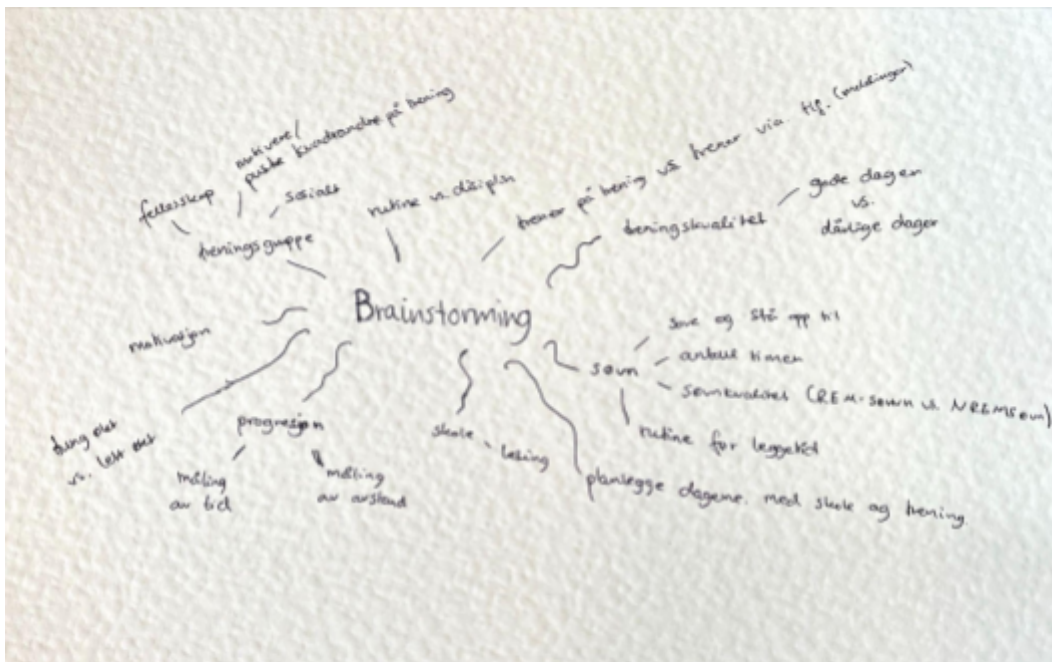 fellesskap
motivere/
pushe hverandre på trening
sosialt
treningsgruppe
rutine vs. disiplin
trener på trening vs trener via tlf. (meldinger)
treningskvalitet
gode dager
vs.
dårlige dager
Brainstorming
motivasjon
tung økt
vs. lett økt
progresjon
måling
av tid
måling
av avstand
skole
lesing
søvn
sove og stå opp tid
antall timer
søvnkvalitet (REM-søvn vs. NREMsøvn)
rutine for leggetid
planlegge dagene med skole og trening